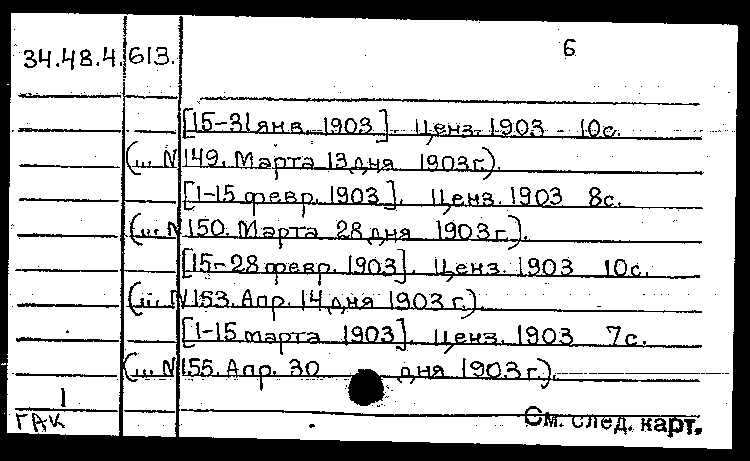 34.48.4. 613. 6
[15-31 янв. 1903]. Ценз. 1903 - 10с.
(... N 149. Марта 13 дня 1903г.).
[1-15 февр. 1903]. Ценз. 1903 8с.
(... N 150. Марта 28 дня 1903г.).
[15-28 февр. 1903]. Ценз. 1903 10с.
(... N 153. Апр. 14 дня 1903г.).
[1-15 марта 1903]. Ценз. 1903 7с.
(... N 155. Апр. 30 дня 1903г.).
1
ГАК См. след. карт.